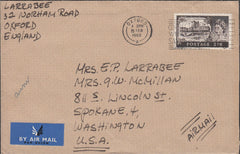 LARRABEE
32 NORHAM ROAD
OXFORD
ENGLAND
OXFORD
1965
POSTAGE 2/6
MRS. E.P. LARRABEE
MRS. G.W. McMILLAN
811 S. LINCOLN ST.
SPOKANE 4
WASHINGTON
U.S.A.
AIRMAIL
BY AIR MAIL
PAR AVION